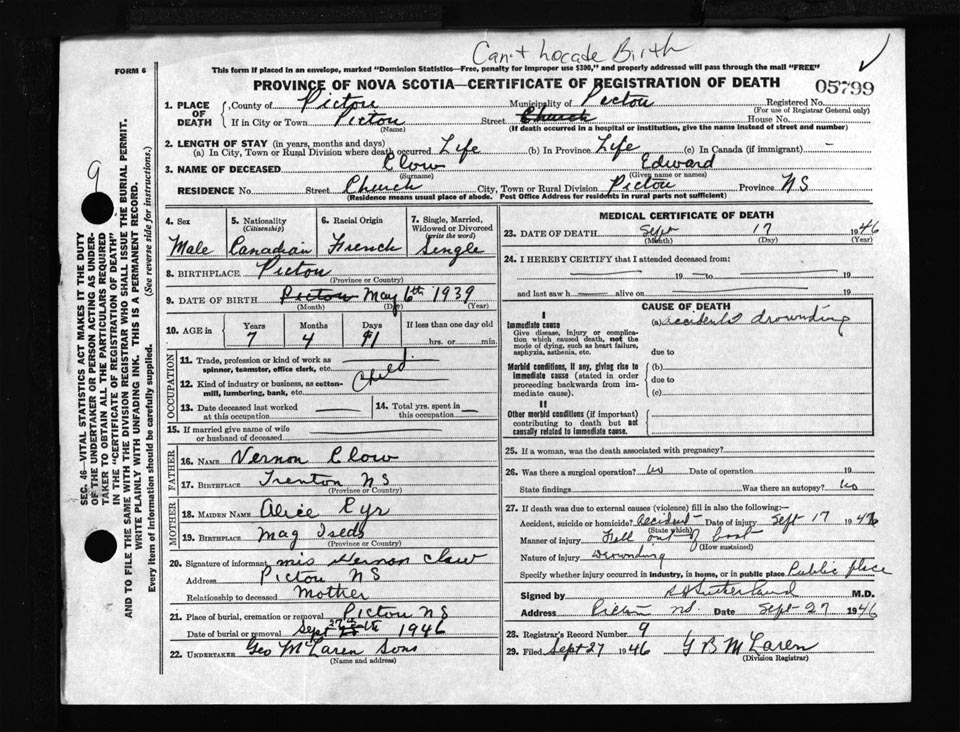 Can't Locate Birth
FORM 6 This form if placed in an envelope, marked "Dominion Statistics—Free, penalty for improper use $300," and properly addressed will pass through the mail "FREE"
PROVINCE OF NOVA SCOTIA—CERTIFICATE OF REGISTRATION OF DEATH 05799
1. PLACE OF DEATH County of Pictou Municipality of Pictou Registered No.
(For use of Registrar General only)
If in City or Town Pictou Street Church House No.
(Name) (If death occurred in a hospital or institution, give the name instead of street and number)
2. LENGTH OF STAY (in years, months and days)
(a) In City, Town or Rural Division where death occurred Life (b) In Province Life (c) In Canada (if immigrant) -
3. NAME OF DECEASED Clow Edward
(Surname) (Given name or names)
RESIDENCE No. Street Church City, Town or Rural Division Pictou Province NS
(Residence means usual place of abode. Post Office Address for residents in rural parts not sufficient)
4. Sex 5. Nationality 6. Racial Origin 7. Single, Married, Widowed or Divorced
(Citizenship) (write the word)
Male Canadian French Single
8. BIRTHPLACE Pictou
(Province or Country)
9. DATE OF BIRTH Pictou May 6th 1939
(Month) (Day) (Year)
10. AGE in Years Months Days If less than one day old
7 4 11 hrs. or min.
OCCUPATION
11. Trade, profession or kind of work as spinner, teamster, office clerk, etc.
12. Kind of industry or business, as cotton-mill, lumbering, bank, etc. Child
13. Date deceased last worked at this occupation 14. Total yrs. spent in this occupation
15. If married give name of wife or husband of deceased
FATHER
16. NAME Vernon Clow
17. BIRTHPLACE Trenton NS
(Province or Country)
MOTHER
18. MAIDEN NAME Alice
19. BIRTHPLACE Mag Iseds
(Province or Country)
20. Signature of informant Mrs Vernon Clow
Address Pictou NS
Relationship to deceased Mother
21. Place of burial, cremation or removal Pictou NS
Date of burial or removal Sept 1946
22. UNDERTAKER Geo McLaren Sons
(Name and address)
MEDICAL CERTIFICATE OF DEATH
23. DATE OF DEATH Sept 17 1946
(Month) (Day) (Year)
24. I HEREBY CERTIFY that I attended deceased from:
19 to 19
and last saw h alive on 19
CAUSE OF DEATH
I
Immediate cause (a) Accidental drownding
Give disease, injury or complication which caused death, not the mode of dying, such as heart failure, asphyxia, asthenia, etc.
due to
Morbid conditions, if any, giving rise to immediate cause (stated in order proceeding backwards from immediate cause). (b)
due to
(c)
II
Other morbid conditions (if important) contributing to death but not causally related to immediate cause.
25. If a woman, was the death associated with pregnancy?
26. Was there a surgical operation? no Date of operation 19
State findings Was there an autopsy? no
27. If death was due to external causes (violence) fill in also the following:—
Accident, suicide or homicide? Accident Date of injury Sept 17 1946
(State which)
Manner of injury Fell out of boat
(How sustained)
Nature of injury Drownding
Specify whether injury occurred in industry, in home, or in public place Public place
Signed by Sutherland M.D.
Address Pictou NS Date Sept 27 1946
28. Registrar's Record Number 9
29. Filed Sept 27 1946 G B McLaren
(Division Registrar)
9
SEC. 46—VITAL STATISTICS ACT MAKES IT THE DUTY
OF THE UNDERTAKER OR PERSON ACTING AS UNDER-
TAKER TO OBTAIN ALL THE PARTICULARS REQUIRED
IN THE "CERTIFICATE OF REGISTRATION OF DEATH"
AND TO FILE THE SAME WITH THE DIVISION REGISTRAR WHO SHALL ISSUE THE BURIAL PERMIT.
WRITE PLAINLY WITH UNFADING INK. THIS IS A PERMANENT RECORD.
Every item of information should be carefully supplied. (See reverse side for instructions.)